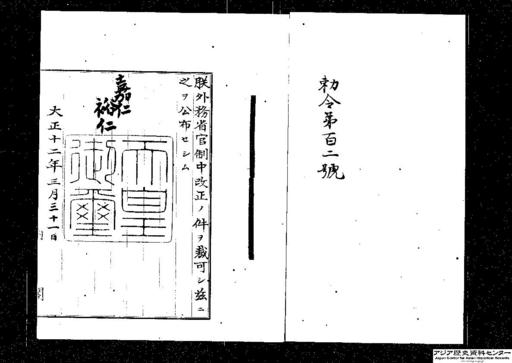 勅令第百二號
朕外務省官制中改正ノ件ヲ裁可シ茲ニ
之ヲ公布セシム
嘉仁
裕仁
天皇
御璽
大正十二年三月三十一日
内閣
アジア歴史資料センター
Japan Center for Asian Historical Records